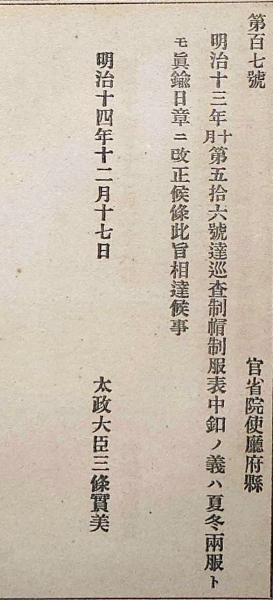 第百七號
官省院使廳府縣
明治十三年十月第五拾六號達巡査制帽制服表中釦ノ義ハ夏冬兩服ト
モ眞鍮日章ニ改正候條此旨相達候事
明治十四年十二月十七日
太政大臣三條實美